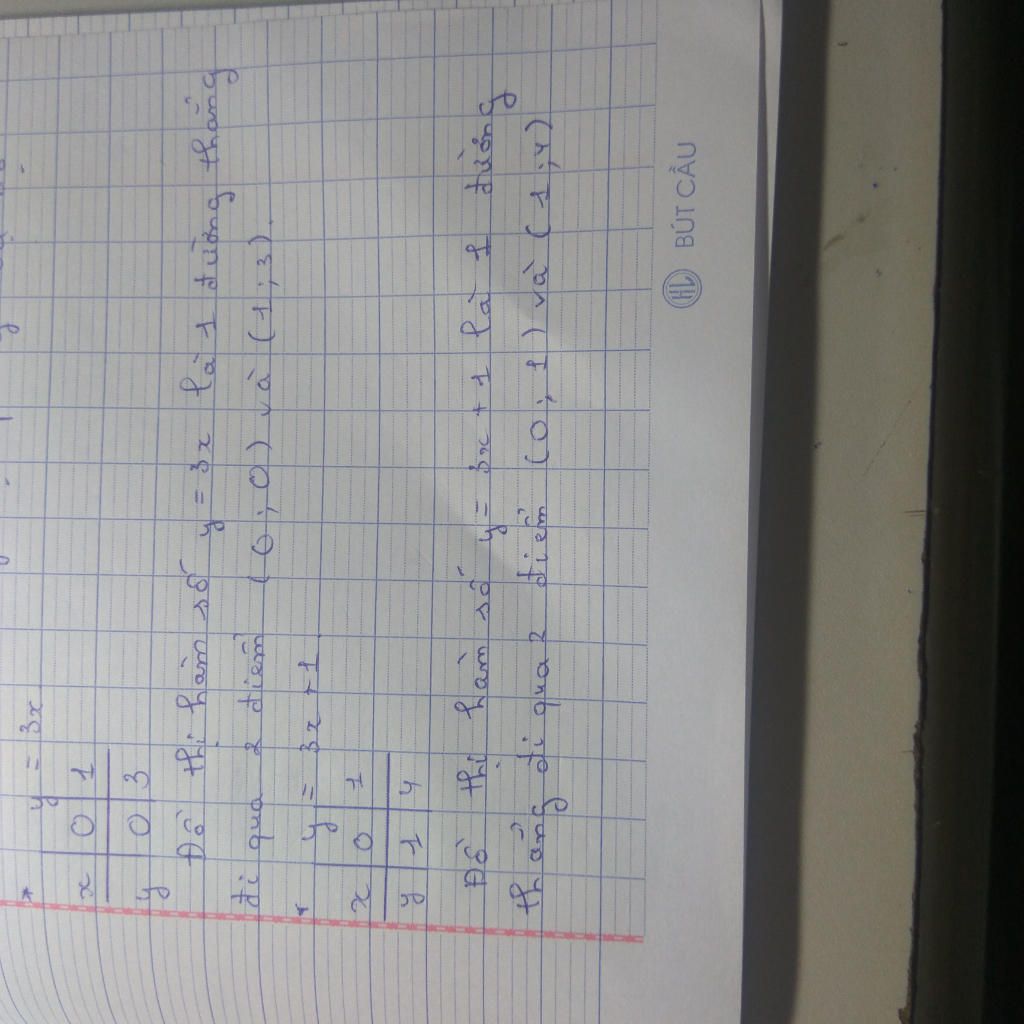 * y = 3x
x 0 1
y 0 3
Đồ thị hàm số y = 3x là 1 đường thẳng
đi qua 2 điểm (0; 0) và (1; 3).
* y = 3x + 1
x 0 1
y 1 4
Đồ thị hàm số y = 3x + 1 là 1 đường
thẳng đi qua 2 điểm (0; 1) và (1; 4)
HL BÚT CẦU